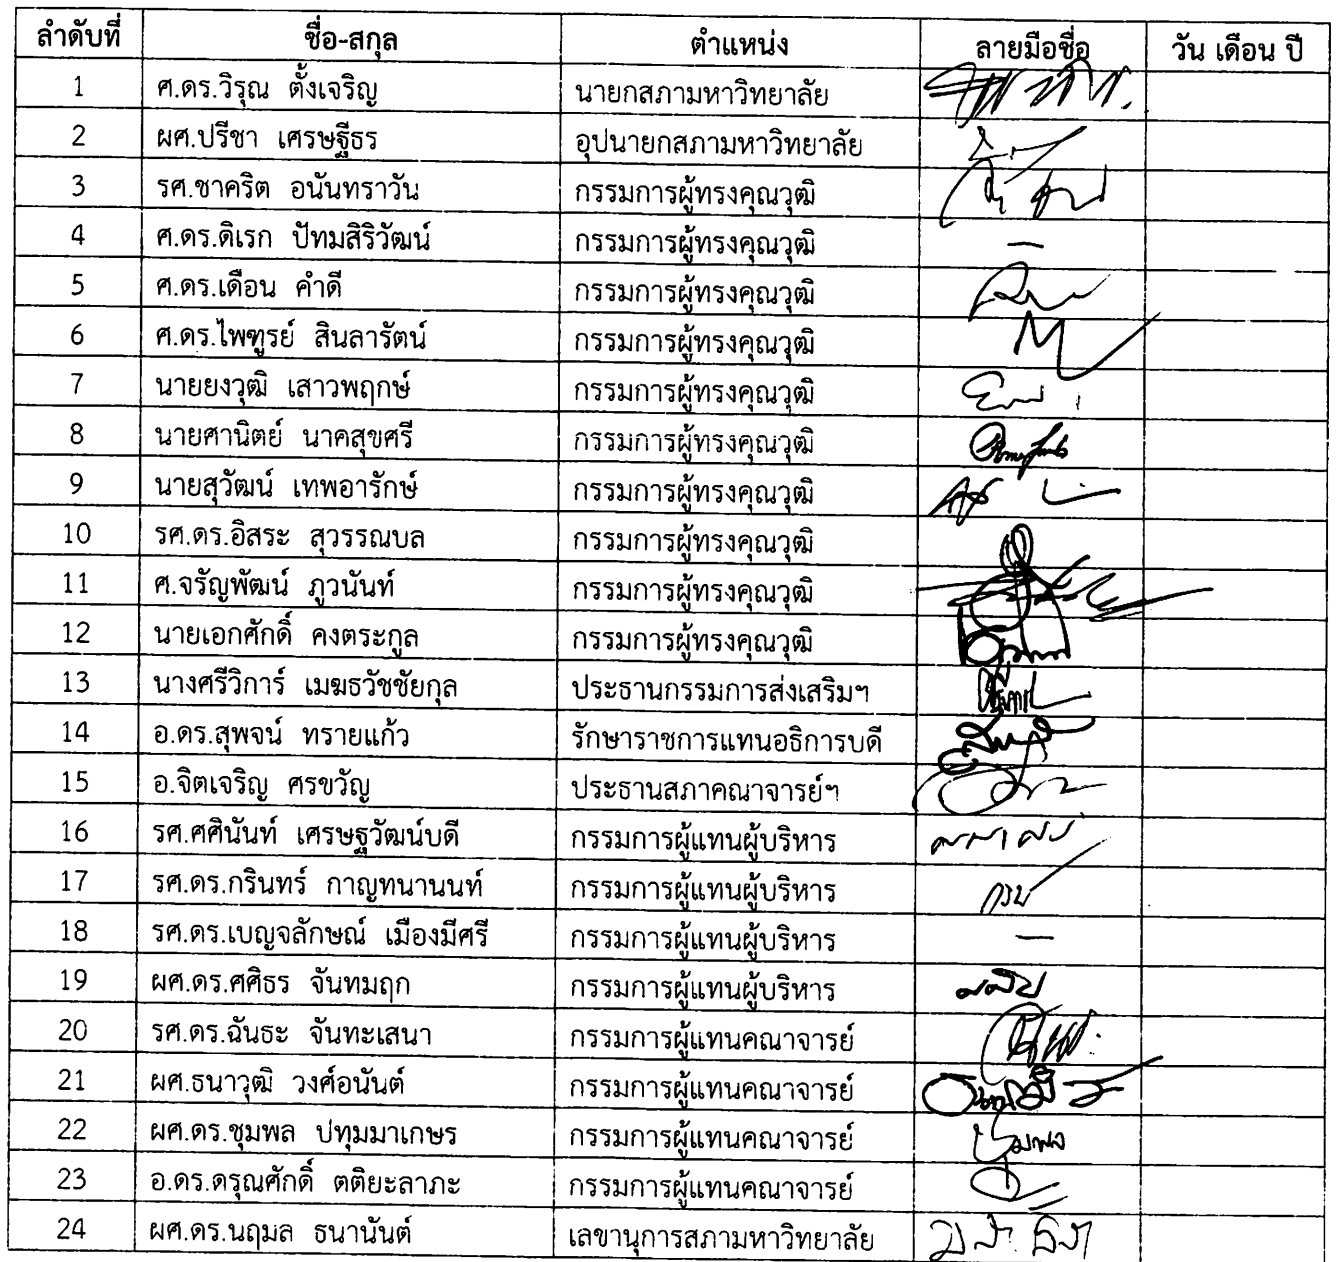 ลำดับที่ ชื่อ-สกุล ตำแหน่ง ลายมือชื่อ วัน เดือน ปี
1 ศ.ดร.วิรุณ ตั้งเจริญ นายกสภามหาวิทยาลัย
2 ผศ.ปรีชา เศรษฐีธร อุปนายกสภามหาวิทยาลัย
3 รศ.ชาคริต อนันทราวัน กรรมการผู้ทรงคุณวุฒิ
4 ศ.ดร.ดิเรก ปัทมสิริวัฒน์ กรรมการผู้ทรงคุณวุฒิ —
5 ศ.ดร.เดือน คำดี กรรมการผู้ทรงคุณวุฒิ
6 ศ.ดร.ไพฑูรย์ สินลารัตน์ กรรมการผู้ทรงคุณวุฒิ
7 นายยงวุฒิ เสาวพฤกษ์ กรรมการผู้ทรงคุณวุฒิ
8 นายศานิตย์ นาคสุขศรี กรรมการผู้ทรงคุณวุฒิ
9 นายสุวัฒน์ เทพอารักษ์ กรรมการผู้ทรงคุณวุฒิ
10 รศ.ดร.อิสระ สุวรรณบล กรรมการผู้ทรงคุณวุฒิ
11 ศ.จรัญพัฒน์ ภูวนันท์ กรรมการผู้ทรงคุณวุฒิ
12 นายเอกศักดิ์ คงตระกูล กรรมการผู้ทรงคุณวุฒิ
13 นางศรีวิการ์ เมฆธวัชชัยกุล ประธานกรรมการส่งเสริมฯ
14 อ.ดร.สุพจน์ ทรายแก้ว รักษาราชการแทนอธิการบดี
15 อ.จิตเจริญ ศรขวัญ ประธานสภาคณาจารย์ฯ
16 รศ.ศศินันท์ เศรษฐวัฒน์บดี กรรมการผู้แทนผู้บริหาร
17 รศ.ดร.กรินทร์ กาญทนานนท์ กรรมการผู้แทนผู้บริหาร
18 รศ.ดร.เบญจลักษณ์ เมืองมีศรี กรรมการผู้แทนผู้บริหาร —
19 ผศ.ดร.ศศิธร จันทมฤก กรรมการผู้แทนผู้บริหาร
20 รศ.ดร.ฉันธะ จันทะเสนา กรรมการผู้แทนคณาจารย์
21 ผศ.ธนาวุฒิ วงศ์อนันต์ กรรมการผู้แทนคณาจารย์
22 ผศ.ดร.ชุมพล ปทุมมาเกษร กรรมการผู้แทนคณาจารย์
23 อ.ดร.ดรุณศักดิ์ ตติยะลาภะ กรรมการผู้แทนคณาจารย์
24 ผศ.ดร.นฤมล ธนานันต์ เลขานุการสภามหาวิทยาลัย